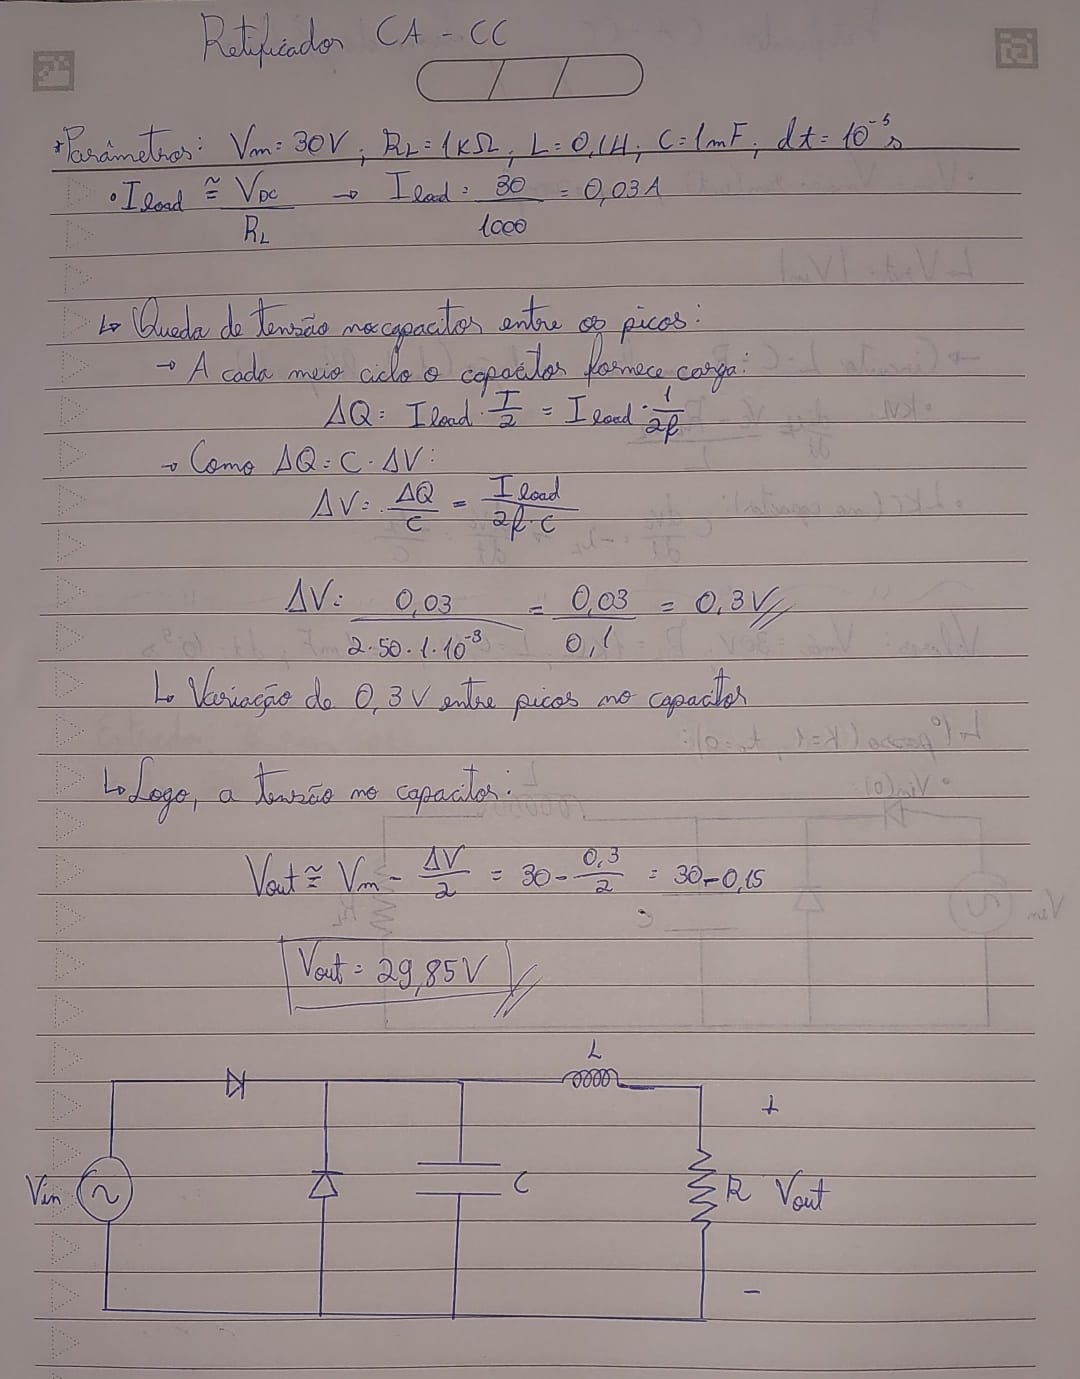 Retificador CA - CC
*Parâmetros: Vm = 30V ; RL = 1KΩ ; L = 0,1H ; C = 1mF ; dt = 10⁻⁵ s
• I load ≅ VDC / RL → I load = 30 / 1000 = 0,03A
↳ Queda de tensão no capacitor entre os picos:
→ A cada meio ciclo o capacitor fornece carga:
ΔQ = I load · T/2 = I load · 1/2f
→ Como ΔQ = C · ΔV:
ΔV = ΔQ/C = I load / 2f·C
ΔV = 0,03 / 2·50·1·10⁻³ = 0,03 / 0,1 = 0,3V //
↳ Variação de 0,3 V entre picos no capacitor
↳ Logo, a tensão no capacitor:
Vout ≅ Vm - ΔV/2 = 30 - 0,3/2 = 30 - 0,15
Vout = 29,85V //
L
+
Vin
C
R
Vout
-